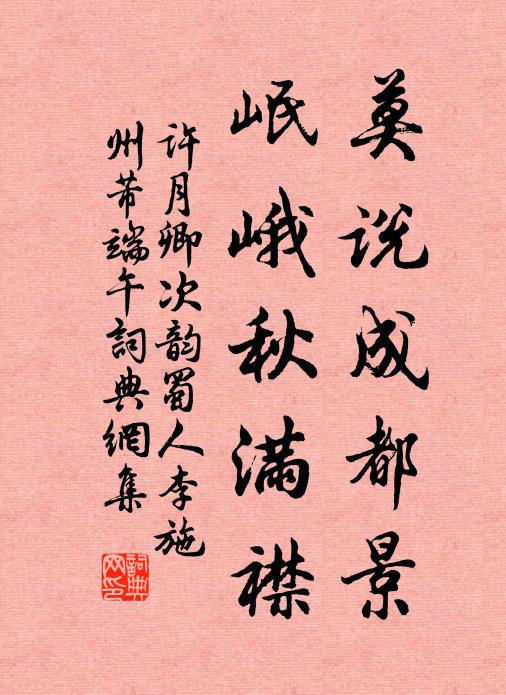 莫说成都景
岷峨秋满襟
许月卿次韵蜀人李施
州芾端午词典網集
詞典网印